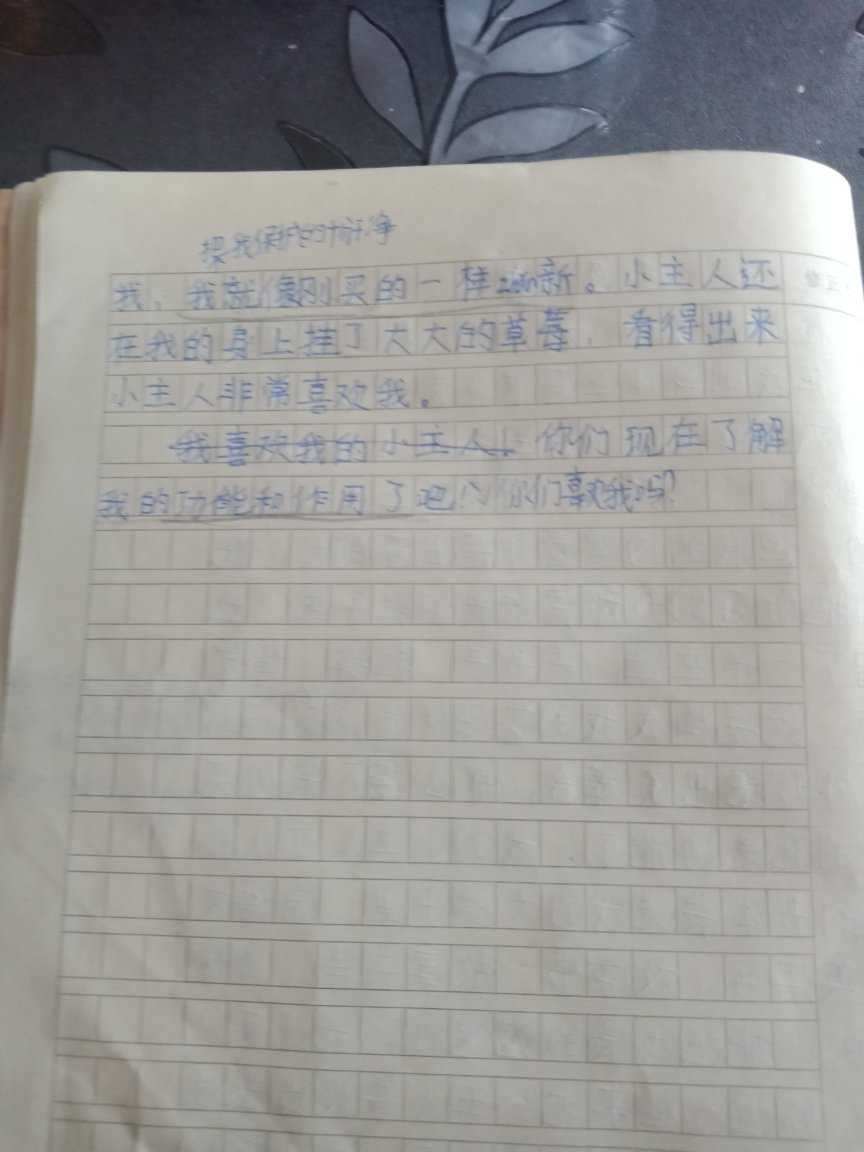 把我保护的干净
我，我就像刚买的一样zhǎn新。小主人还
在我的身上挂了大大的草莓，看得出来
小主人非常喜欢我。
我喜欢我的小主人！你们现在了解
我的功能和作用了吧！你们喜欢我吗？
修正